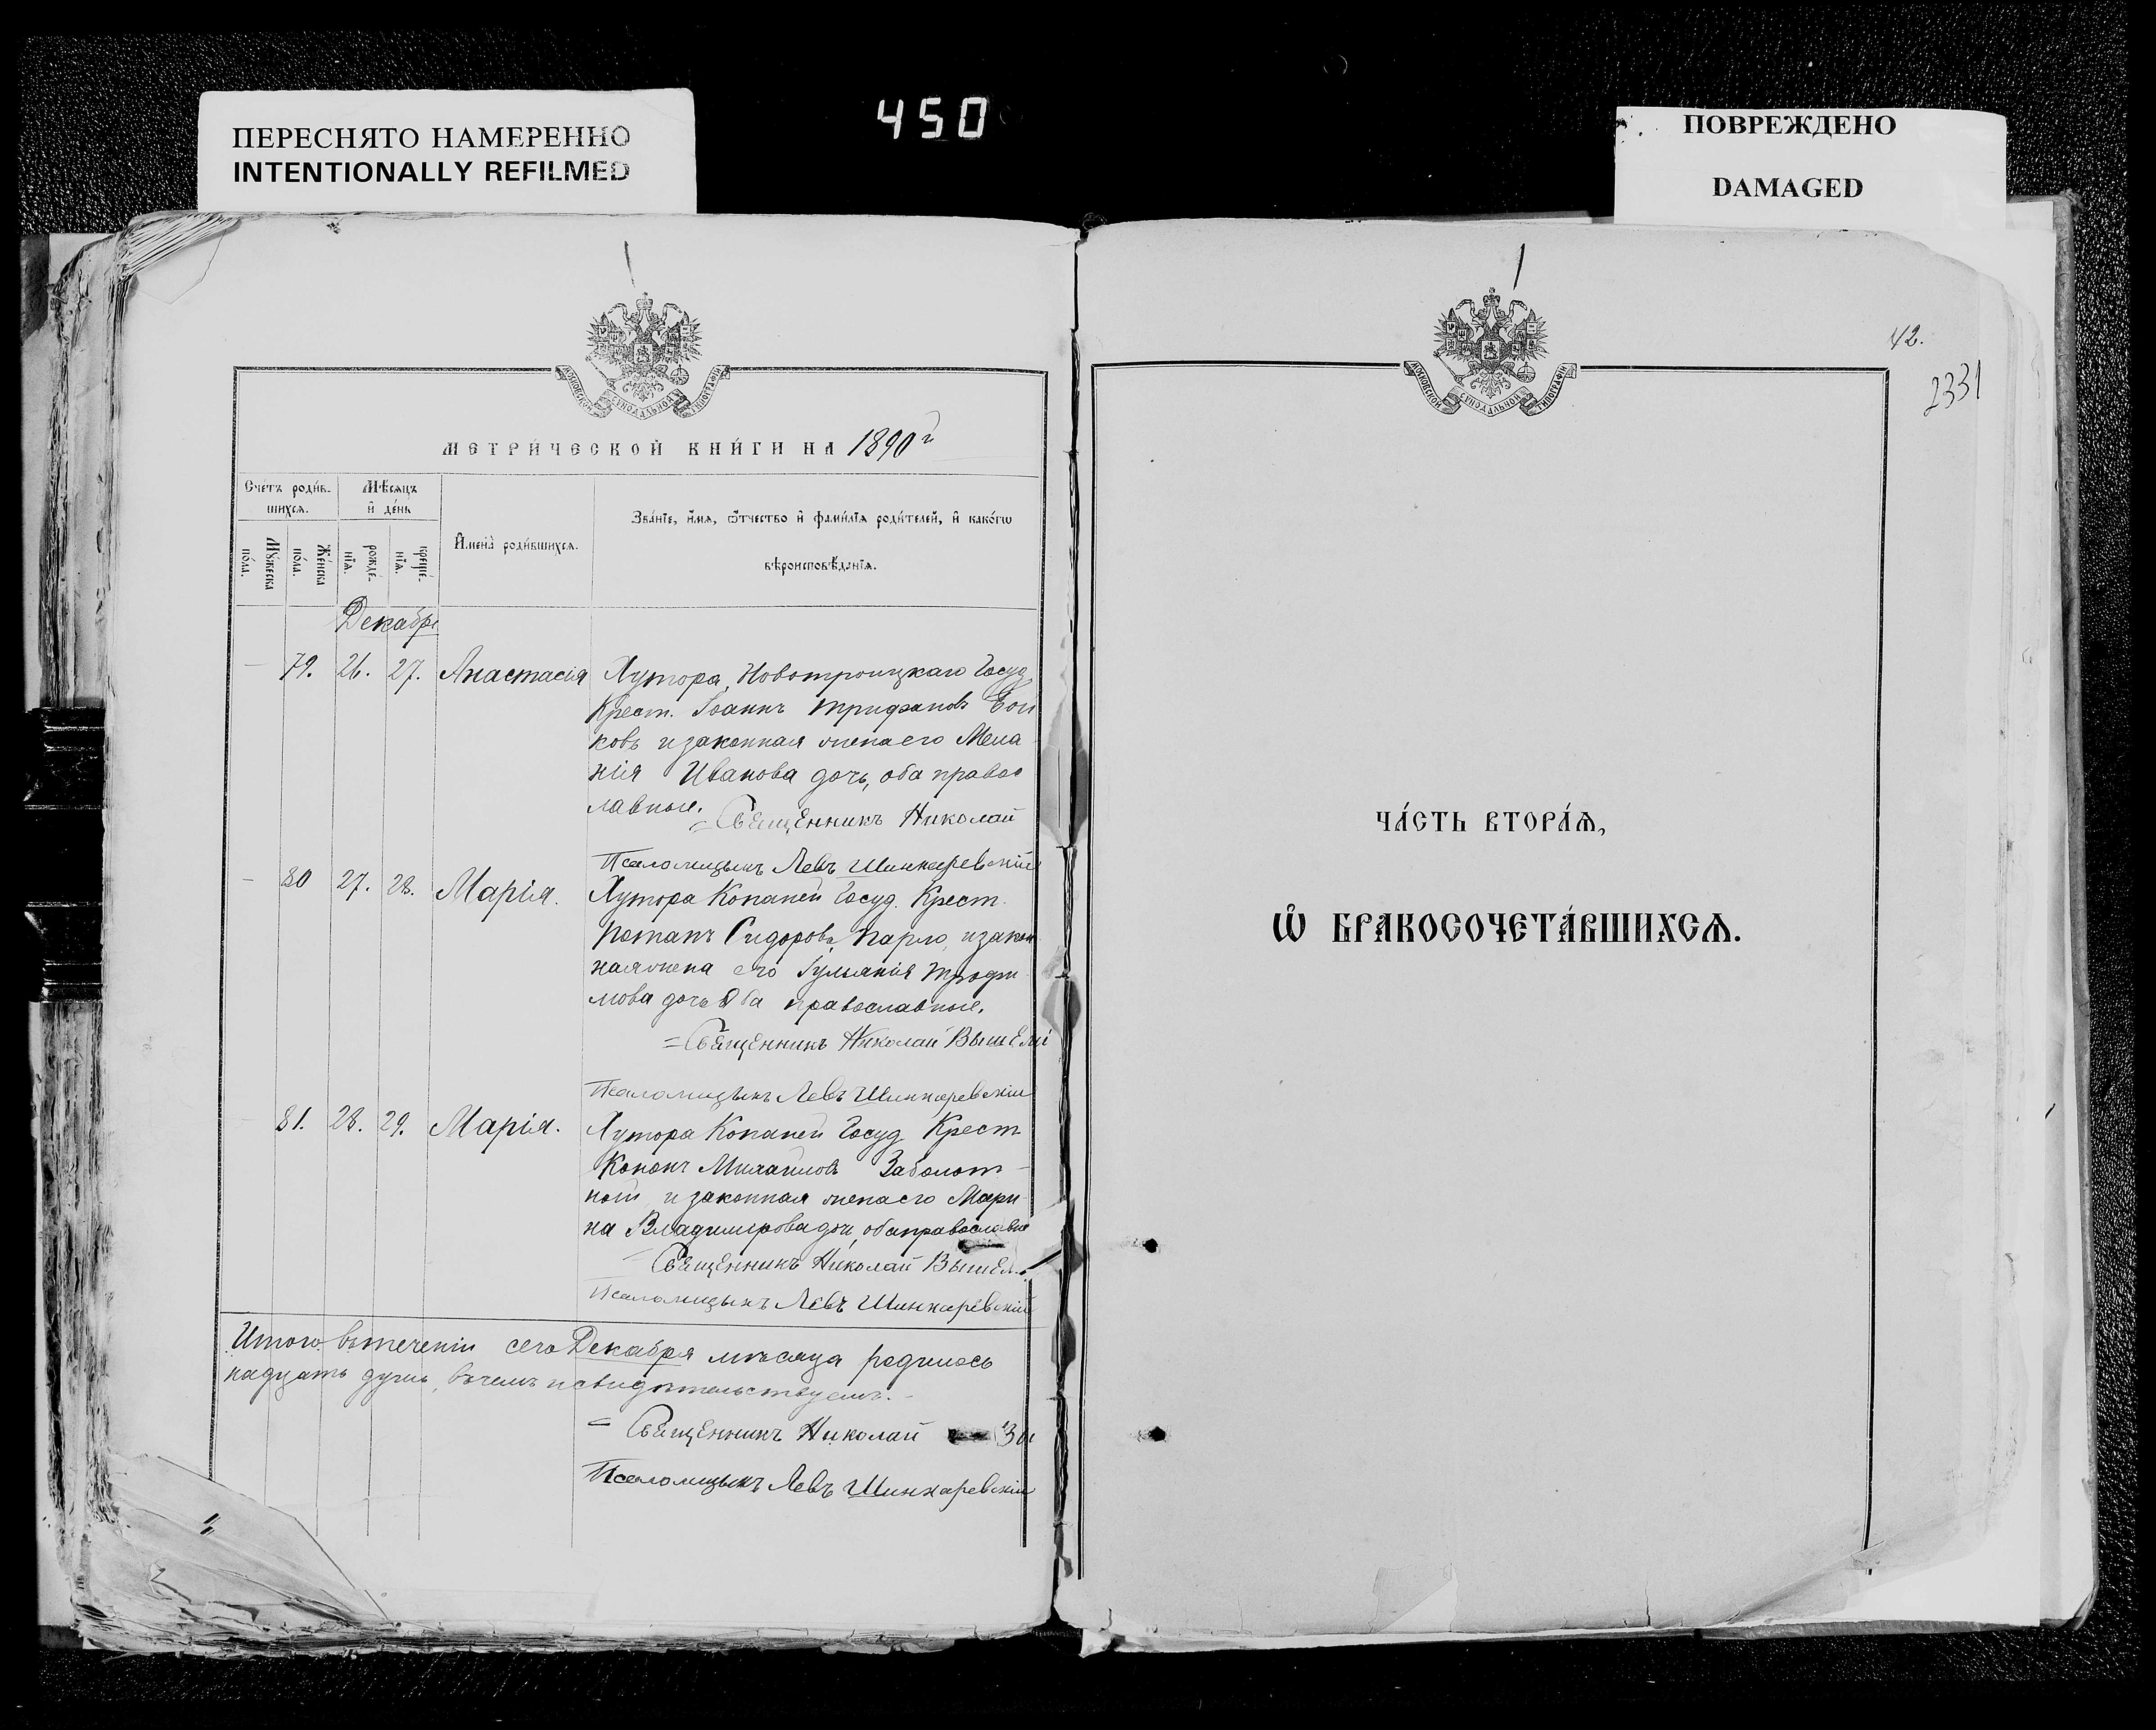 ПЕРЕСНЯТО НАМЕРЕННО
INTENTIONALLY REFILMED
450
ПОВРЕЖДЕНО
DAMAGED
МОСКОВСКОЙ СѴНОДАЛЬНОЙ ТИПОГРАФІИ
МЕТРИ́ЧЕСКОЙ КНИ́ГИ НА 1890 г
Сче́тъ роди́в-
шихсѧ.
Мѣ́сѧцъ
и҆ де́нь
Мꙋ́жеска
по́ла.
Же́нска
по́ла.
рожде́-
нїѧ.
креще́-
нїѧ.
И҆мена̀ роди́вшихсѧ.
Зва́нїе, и҆́мѧ, ѻ҆́тчество и҆ фами́лїѧ роди́телей, и҆ како́гѡ
вѣроисповѣ́данїѧ.
Декабрь
— 79. 26. 27. Анастасія Хутора Новотроицкаго Госуд.
Крест. Іоаннъ Трифоновъ Бой
ковъ и законная жена его Мела
нія Иванова дочь, оба право
лавные.
= Священникъ Николай
Псаломщикъ Левъ Шинкаревскій
— 80 27. 28. Марія. Хутора Копаней Госуд. Крест.
Потапъ Сидоровъ Парло, и закон
ная жена его Іульянія Трофи
мова дочь Оба православные.
= Священникъ Николай
Псаломщикъ Левъ Шинкаревскій
81. 28. 29. Марія. Хутора Копаней Госуд. Крест
Кононъ Михаиловъ Заболот-
ной и законная жена его Мари-
на Владимірова дочь, оба православные
Священникъ Николай
Псаломщикъ Левъ Шинкаревскій
Итого въ теченіи сего Декабря мѣсяца родилось
надцать душъ, въ чемъ и свидѣтельствуемъ.-
= Священникъ Николай
Псаломщикъ Левъ Шинкаревскій
МОСКОВСКОЙ СѴНОДАЛЬНОЙ ТИПОГРАФІИ
42.
2331
ЧА́СТЬ ВТОРА́Ѧ,
Ѡ҆ БРАКОСОЧЕТА́ВШИХСѦ.